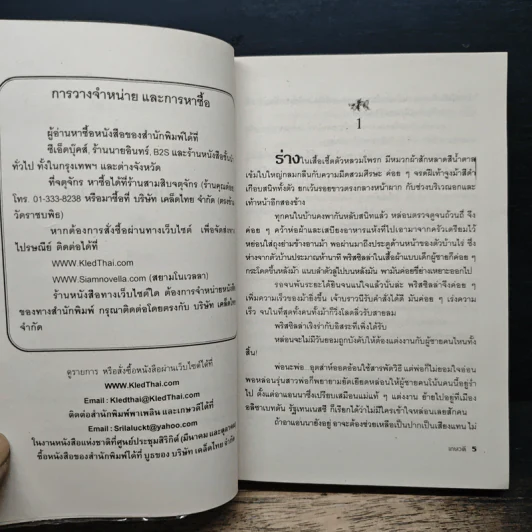 การวางจำหน่าย และการหาซื้อ
ผู้อ่านหาซื้อหนังสือของสำนักพิมพ์ได้ที่
ซีเอ็ดบุ๊คส์, ร้านนายอินทร์, B2S และร้านหนังสือชั้นนำ
ทั่วไป ทั้งในกรุงเทพฯ และต่างจังหวัด
ที่จตุจักร หาซื้อได้ที่ร้านสามสิบจตุจักร (ร้านคุณต้อย
โทร. 01-333-8238 หรือมาซื้อที่ บริษัท เคล็ดไทย จำกัด (ตรงข้าม
วัดราชบพิธ)
หากต้องการสั่งซื้อผ่านทางเว็บไซต์ เพื่อจัดส่งทาง
ไปรษณีย์ ติดต่อได้ที่
www.KledThai.com
www.Siamnovella.com (สยามโนเวลลา)
ร้านหนังสือทางเว็บไซต์ใด ต้องการจำหน่ายหนังสือ
ของทางสำนักพิมพ์ กรุณาติดต่อโดยตรงกับ บริษัท เคล็ดไทย
จำกัด
ดูรายการ หรือสั่งซื้อหนังสือผ่านเว็บไซต์ได้ที่
www.KledThai.com
Email : Kledthai@KledThai.com
ติดต่อสำนักพิมพ์พาเพลิน และเกษวดีได้ที่
Email : Srilaluckt@yahoo.com
ในงานหนังสือแห่งชาติที่ศูนย์ประชุมสิริกิติ์ (มีนาคม และตุลาคม)
ซื้อหนังสือของสำนักพิมพ์ได้ที่ บูธของ บริษัท เคล็ดไทย จำกัด
1
ร่างในเสื้อเชิ้ตตัวหลวมโพรก มีหมวกผ้าสักหลาดสีน้ำตาล
เข้มใบใหญ่กลมกลืนกับความมืดสวมศีรษะ ค่อย ๆ จรดฝีเท้าจูงม้าสีดำ
เกือบสนิททั้งตัว ยกเว้นรอยขาวตรงกลางหน้าผาก กับช่วงบริเวณอกและ
เท้าหน้าอีกสองข้าง
ทุกคนในบ้านคงพากันหลับสนิทแล้ว หล่อนตรวจดูจนถ้วนถี่ จึง
ค่อย ๆ คว้าห่อผ้าและเสบียงอาหารแห้งที่ไปเอามาจากครัวเตรียมไว้
หย่อนใส่ถุงย่ามข้างอานม้า พอผ่านมาถึงประตูด้านหน้าของตัวบ้านไร่ ซึ่ง
ห่างจากตัวบ้านประมาณห้านาที พริสซิลล่าในเสื้อผ้าแบบเด็กผู้ชายก็ค่อย ๆ
กระโดดขึ้นหลังม้า แนบลำตัวลู่ไปบนหลังมัน พามันค่อยขี่ย่างเหยาะออกไป
รอจนพ้นระยะได้ยินจนแน่ใจแล้วนั่นล่ะ พริสซิลล่าจึงค่อย ๆ
เพิ่มความเร็วของม้ายิ่งขึ้น เจ้าบราวนี่รับคำสั่งได้ดี มันค่อย ๆ เร่งความ
เร็ว จนในที่สุดทั้งคนทั้งม้าก็วิ่งโลดลิ่วรับสายลม
พริสซิลล่าเริงร่ากับอิสระที่เพิ่งได้รับ
หล่อนจะไม่มีวันยอมถูกบังคับให้ต้องแต่งงานกับผู้ชายคนไหนทั้ง
สิ้น!
พ่อนะพ่อ อุตส่าห์ออดอ้อนใช้สารพัดวิธี แต่พ่อก็ไม่ยอมใจอ่อน
พอหล่อนรุ่นสาวพ่อก็พยายามยัดเยียดหล่อนให้ผู้ชายคนโน้นคนนี้อยู่ร่ำ
ไป ตั้งแต่อาแอนนาซึ่งเปรียบเสมือนแม่แท้ ๆ แต่งงาน ย้ายไปอยู่ที่เมือง
อลิซาเบทตัน รัฐเทนเนสซี ก็เรียกได้ว่าไม่มีใครเข้าใจหล่อนเลยสักคน
ถ้าอาแอนนายังอยู่ อาจะต้องช่วยเหลือเป็นปากเป็นเสียงแทน ไม่
เกษวดี 5